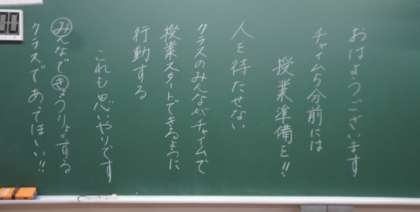 おはようございます
チャイム5分前には
授業準備を!!
人を待たせない
クラスのみんながチャイムで
授業スタートできるように
行動する
これも思いやりです
みなで きょうりょくする
クラスであてほしい!!
00